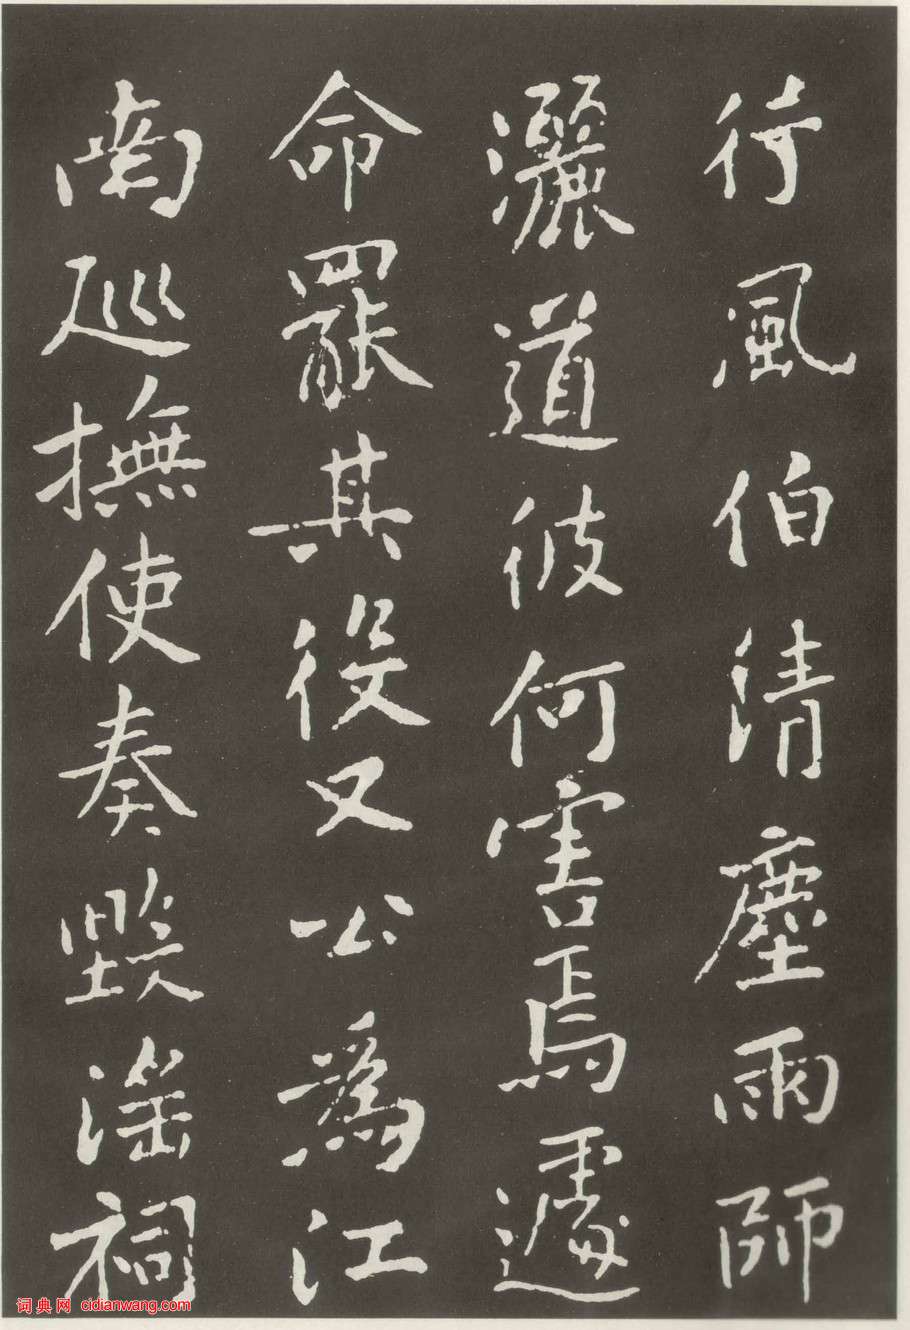 待風伯清塵雨師
灑道彼何害焉遽
命罷其役又公為江
南巡撫使奏毀淫祠
词典网 cidianwang.com